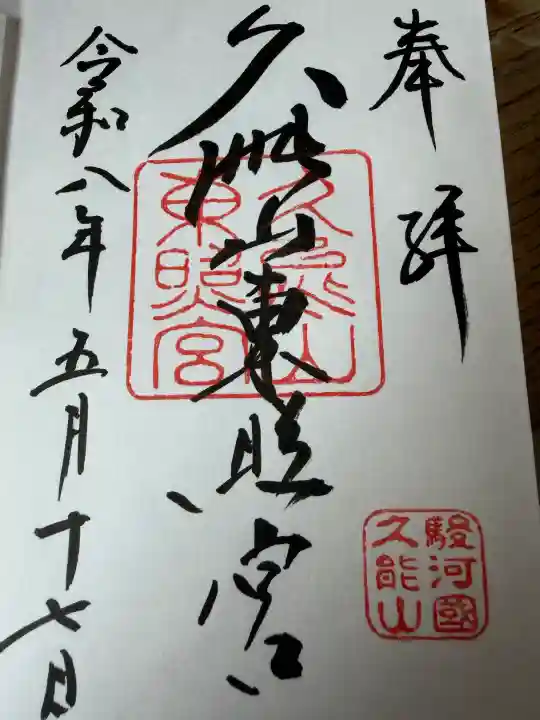 奉拝
久能山東照宮
令和八年五月十七日
久能山
東照宮
駿河國
久能山